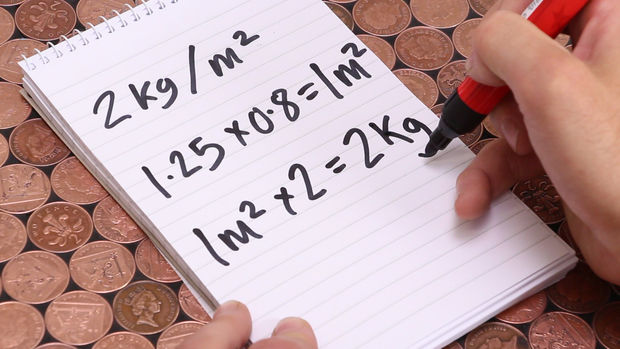 2Kg/m²
1.25×0.8=1m²
1m²×2=2Kg